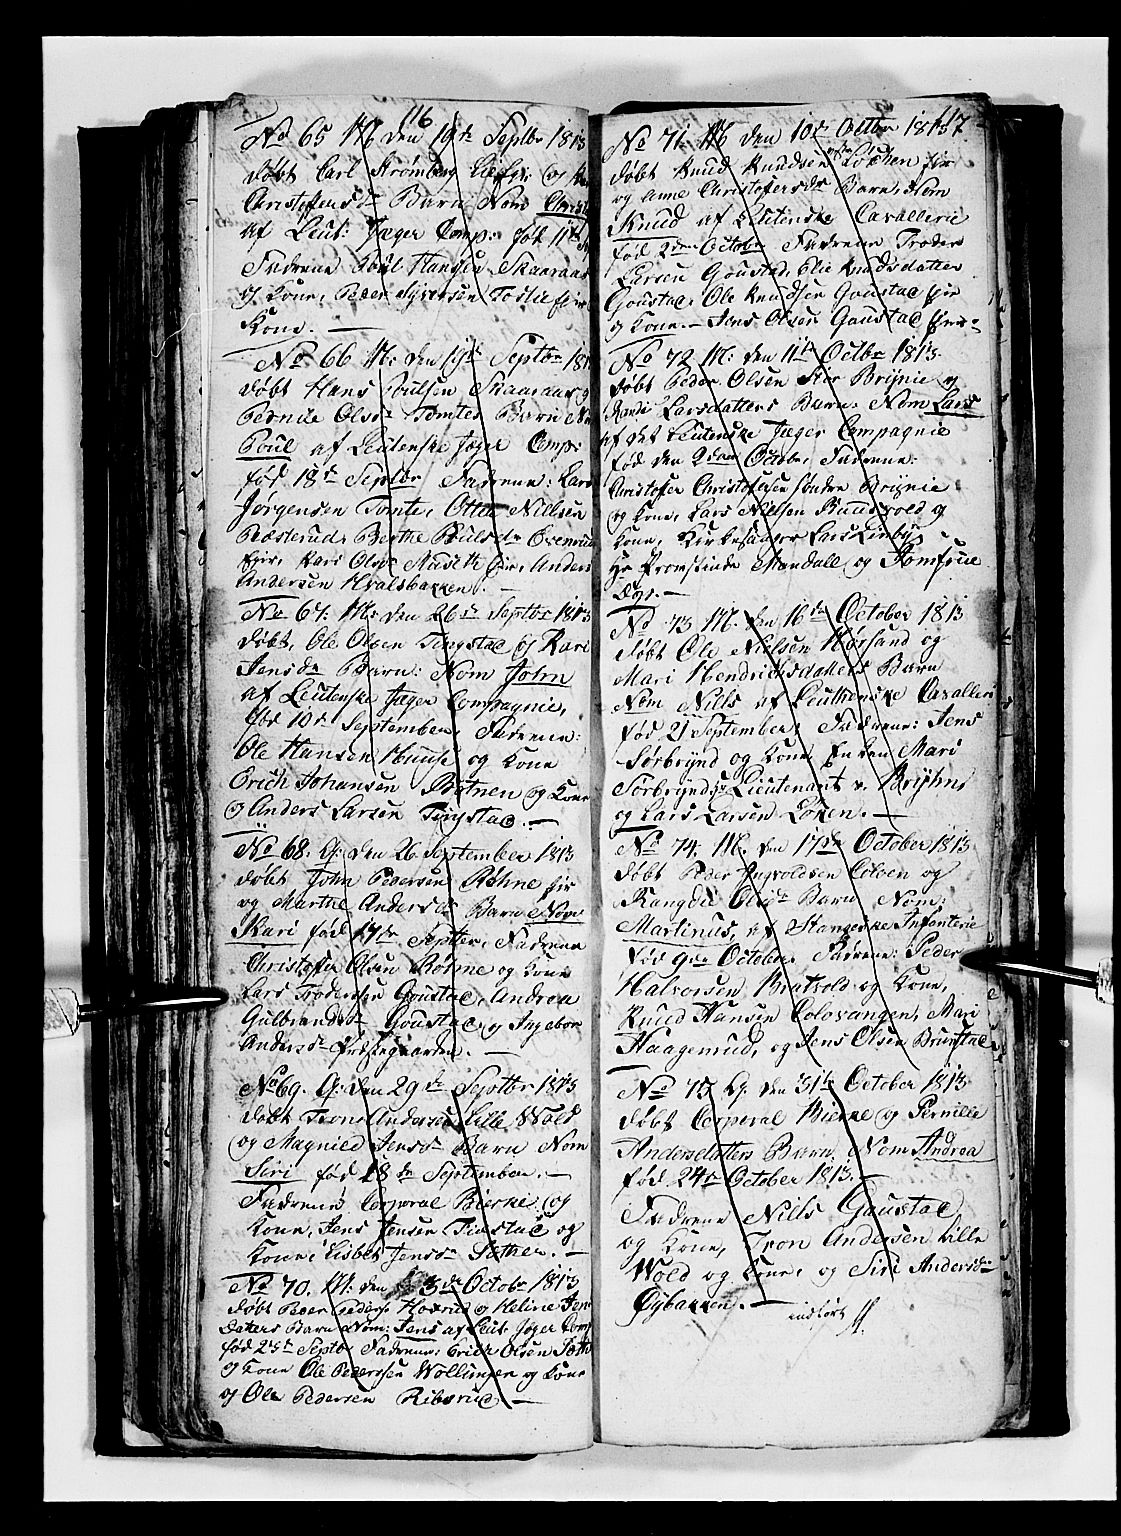 116
No 65 M den 19de Septbr 1813
døbt Carl Strömberg og
Christophersdr Barn Nom
af Leut: Jæger Comp: fød 11te
Fadrene Poul Hansen Skaaraas
og Kone, Peder Syversen Toftte
Kone. —
No 66 M: den 19de Septbr 181
døbt Hans Poulsen Skaaraas og
Pernile Olsdr Tomtes Barn Nom
Poul af Leutenske Jæger Comp:
fød 18de Septbr Fadrene: Lars
Jørgensen Tomte, Otter Nielsen
Præsterud, Berthe Poulsdr Evenrud
Pir, Kari Olsdr Museth Pir, Anders
Andersen Hvalsbakken. —
No 67: M: den 26de Septbr 1813
døbt, Ole Olsen Tingstad og Kari
Jensdr Barn: Nom John
af Leutenske Jæger Compagnie,
fød 10de September, Fadrene:
Ole Hansen Huuse og Kone
Erich Johansen Botnen og Kone
og Anders Larsen Tingstad. —
No 68. Q: den 26 September 1813
døbt John Pedersen Røhne Pir
og Marthe Andersdr Barn Nom
Kari fød 17de Septbr, Fadrene
Christopher Olsen Røhne og Kone
Lars Trodersen Goustad, Andrea
Gulbrandsdr Goustad og Ingebor
Andersdr Præstegaarden. —
No 69. Q: den 29de Septbr 1813
døbt Iron Andersen Lille Wold
og Magnild Jensdr Barn Nom
Siri fød 18de September. —
Fadrene Corporal Bierke og
Kone, Jens Jensen Tiøstad og
Kone, Lisbet Jensdr Sæther. —
No 70. M: den 3de Octobr 1813
døbt Peder Peders: Hoverud og Heline Jens
datters Barn Nom: Jens af Leut: Jæger Comp
fød 25de Septbr Fadrene: Erich Olsen
og Kone Ole Pedersen Wollunger og Kone
og Ole Pedersen Riberud —
117
No 71. M den 10de Octbr 1813
døbt Knud Knudsen Løchen Pir
og Anne Christophersdr Barn, Nom
Knud af Leutenske Cavallerie
fød 2den Octobr Fadrene Troder
Larsen Goustad, Elie Knudsdatter
Goustad, Ole Knudsen Goustad Pir
og Kone. — Jens Olsen Gaustad
No 72. M: den 11te Octbr 1813.
døbt Peder Olsen Brynie og
Randi Larsdatters Barn. Nom Lars
af det Leutenske Jæger Compagnie
fød den 2den Octobr, Fadrene:
Christopher Christophersen Søndre Brynie
og Kone, Lars Nielsen Ruudsvold og
Kone, Kirkesanger Lars Linby,
Hr Provstinde Mandall og Jomfrue
No 73 M. den 16de October 1813
døbt Ole Nielsen Hørsand og
Mari Hendrichsdatters Barn
Nom Nills af Leuthenske Cavalleri
fød 21 September, Fadrene: Jens
Sørbrynd og Kone Enken Mari
Sørbrynd, Hr Lieutenant v. Bryhn,
og Lars Larsen Løken. —
No 74, M. den 17de October 1813
døbt Peder Ingvoldsen Coloen og
Rangdie Olsdr Barn Nom:
Martinus, af Stangeske Infanterie
fød 9de October. Fadrene: Peder
Halvorsen Bratvold og Kone,
Knud Hansen Colovangen, Mari
Haagenrud, og Jens Olsen Brunstad
No 75 Q: den 31te October 1813
døbt Corporal Bierke og Pernille
Andersdatters Barn, Nom Andrea
fød 24de October 1813. —
Fadrene Nills Gaustad
og Kone, Iron Andersen Lille
Wold og Kone, og Siri Andersdr
Øybakken. — indført